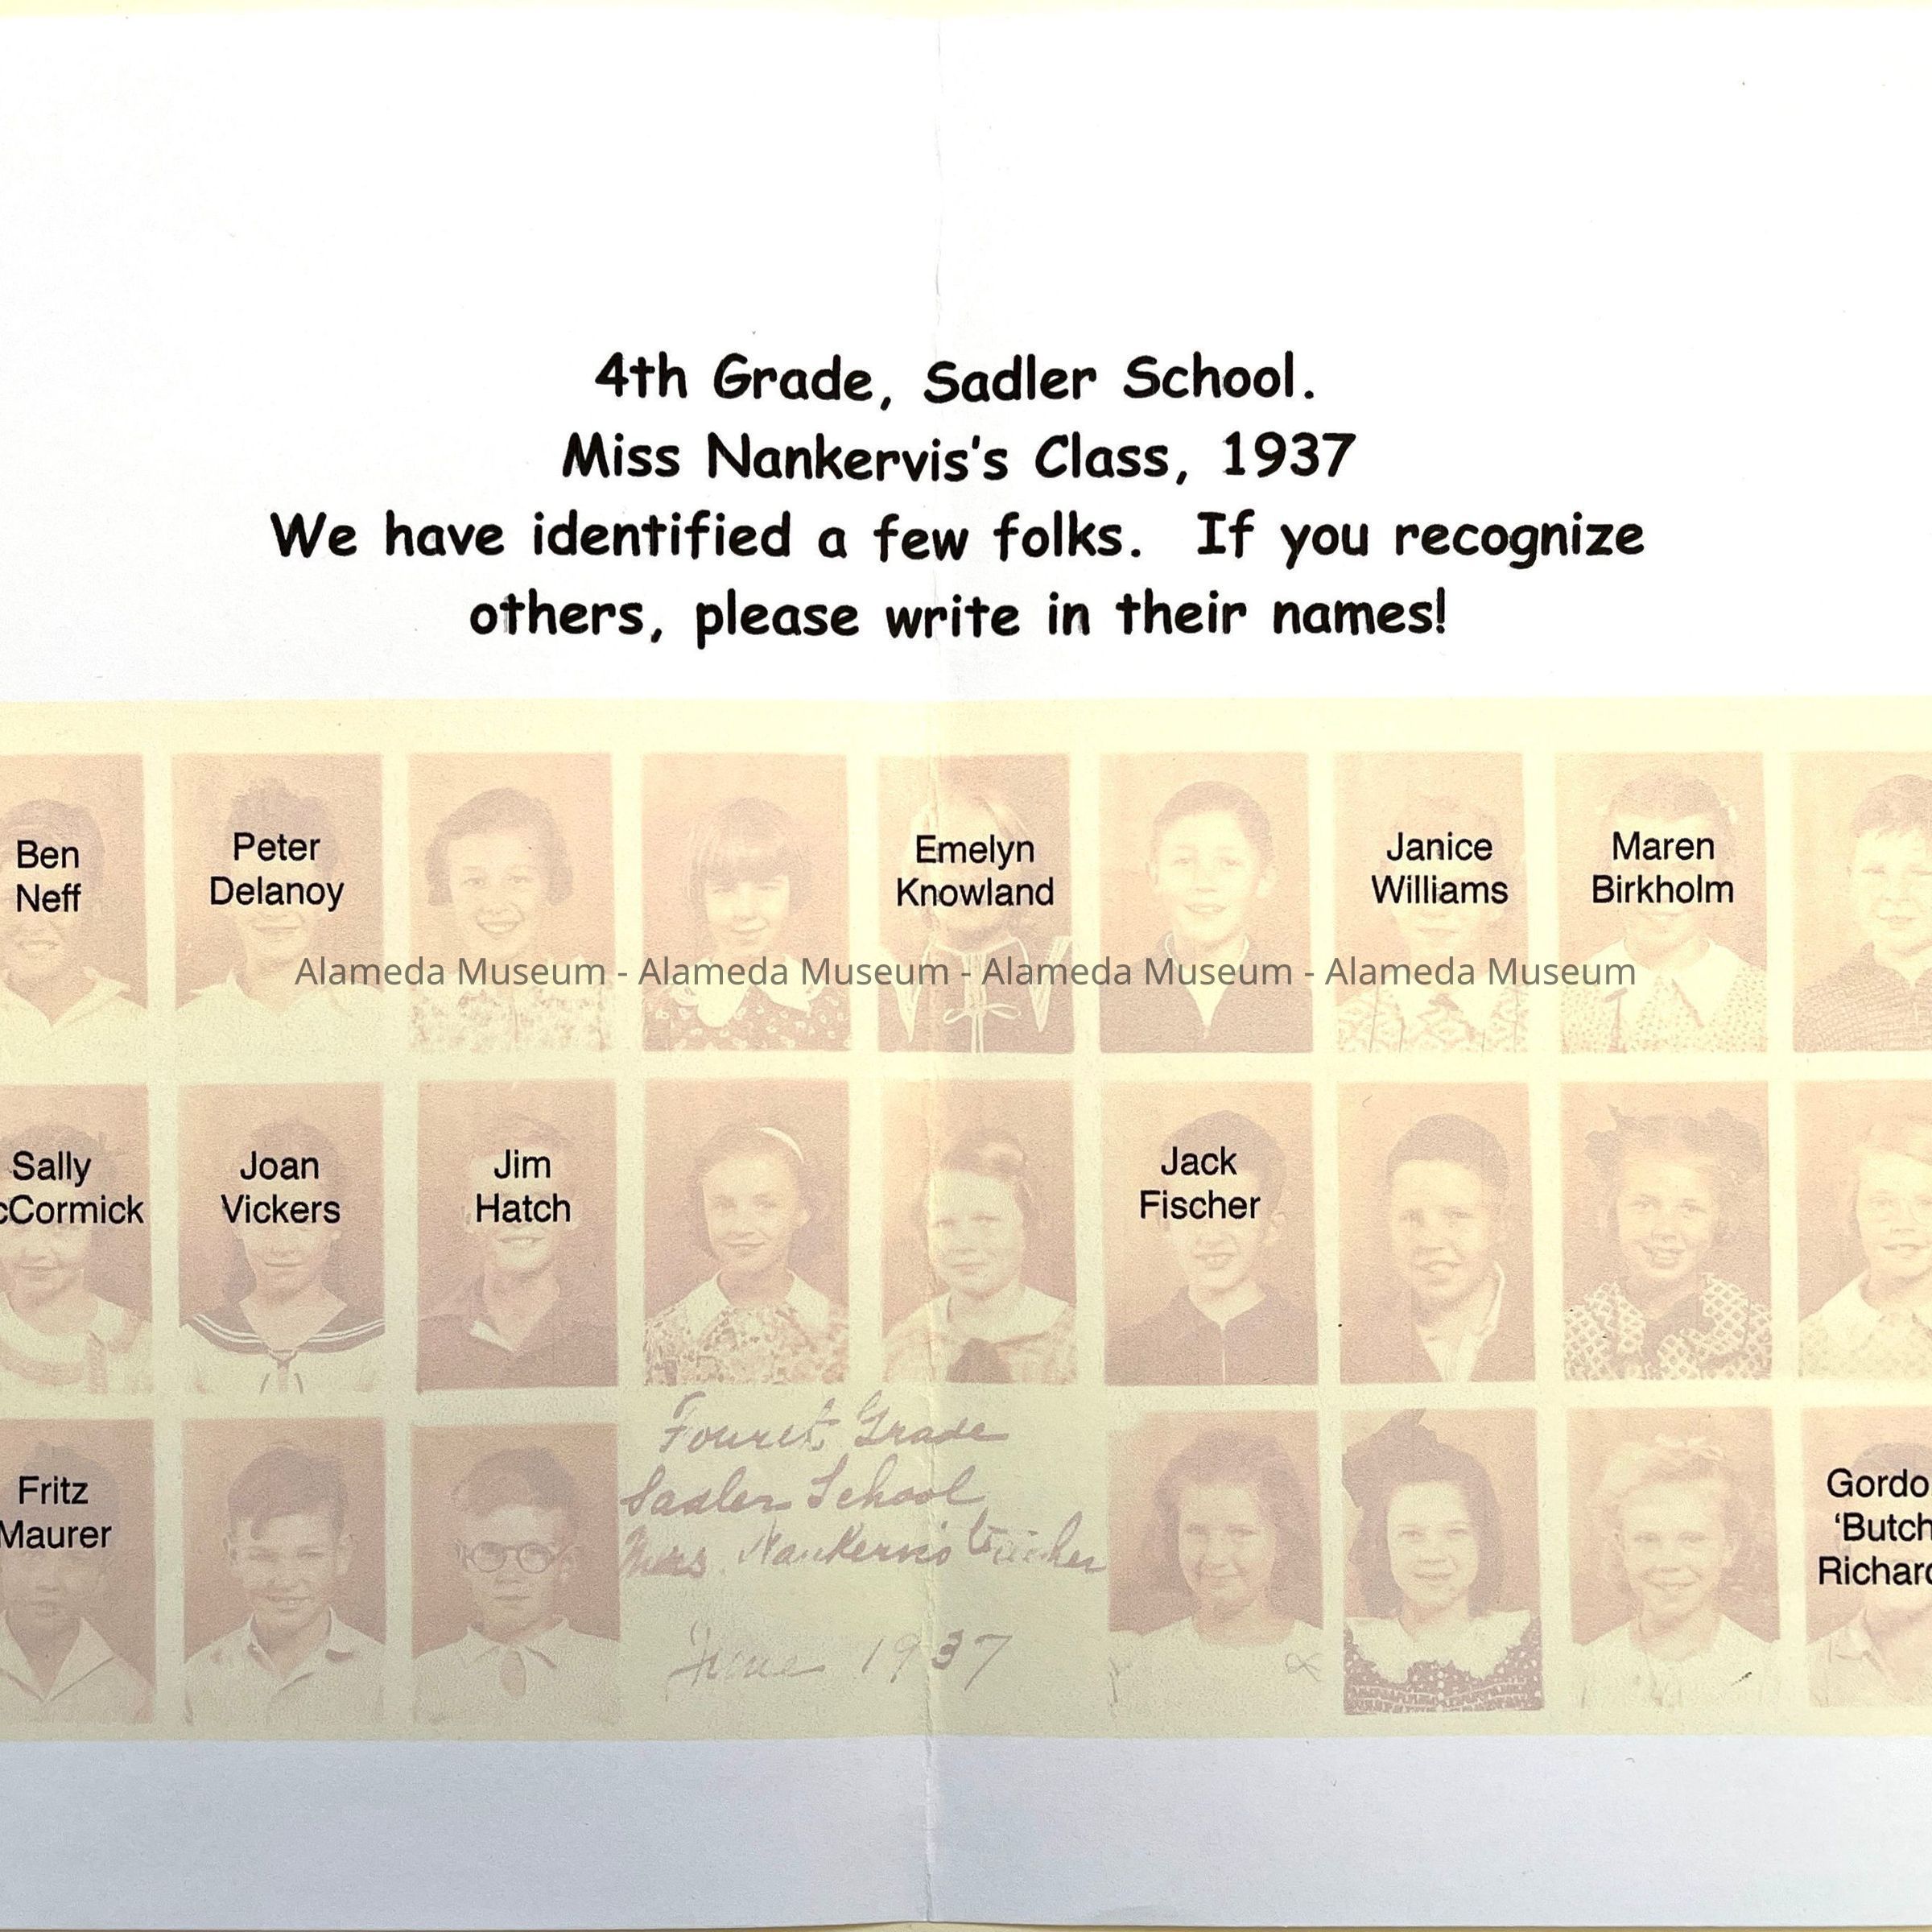 4th Grade, Sadler School.
Miss Nankervis's Class, 1937
We have identified a few folks. If you recognize
others, please write in their names!
Ben
Neff
Peter
Delanoy
Emelyn
Knowland
Janice
Williams
Maren
Birkholm
Alameda Museum - Alameda Museum - Alameda Museum - Alameda Museum
Sally
cCormick
Joan
Vickers
Jim
Hatch
Jack
Fischer
Fritz
Maurer
Fourth Grade
Sadler School
Mrs. Nankervis teacher
June 1937
Gordo
‘Butch
Richard